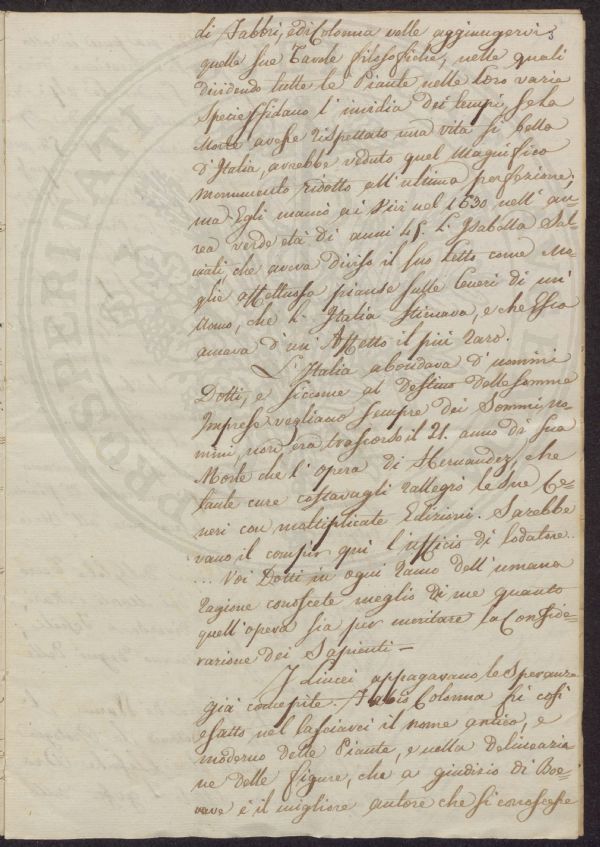 di Fabbri, e di Colonna volle aggiungervi
quelle sue Tavole filosofiche, nelle quali
dividendo tutte le Piante nelle loro varie
Specie sfidano l'invidia dei tempi, se la
Morte avesse rispettato una vita sì bella
d'Italia, avrebbe veduto quel Magnifico
monumento ridotto all'ultima perfezione;
ma Egli mancò ai Vivi nel 1630 nell'au
rea verde età di anni 45. L'Isabella Sal-
viati, che aveva diviso il suo Letto come Mo-
glie affettuosa pianse sulle Ceneri di un'
Uomo, che l'Italia stimava, e che Essa
amava d'un'Affetto il più raro.
L'Italia abondava d'uomini
Dotti, e siccome al destino delle somme
Imprese vegliano sempre dei Sommi uo-
mini, non era trascorso il 21. anno da sua
Morte che l'opera di Hernandez, che
tante cure costavagli rallegrò le sue Ce-
neri con multiplicate Edizioni. Sarebbe
vano il compir qui l'ufficio di lodatore..
... Voi Dotti in ogni ramo dell'umana
ragione conoscete meglio di me quanto
quell'opera sia per meritare la Conside-
razione dei Sapienti —
I Lincei appagavano le Speranze
già concepite. Fabio Colonna fù così
esatto nel lasciarci il nome antico, e
moderno delle Piante, e nella delineazio
ne delle figure, che a giudizio di Boe-
rave è il migliore autore che si conoscesse